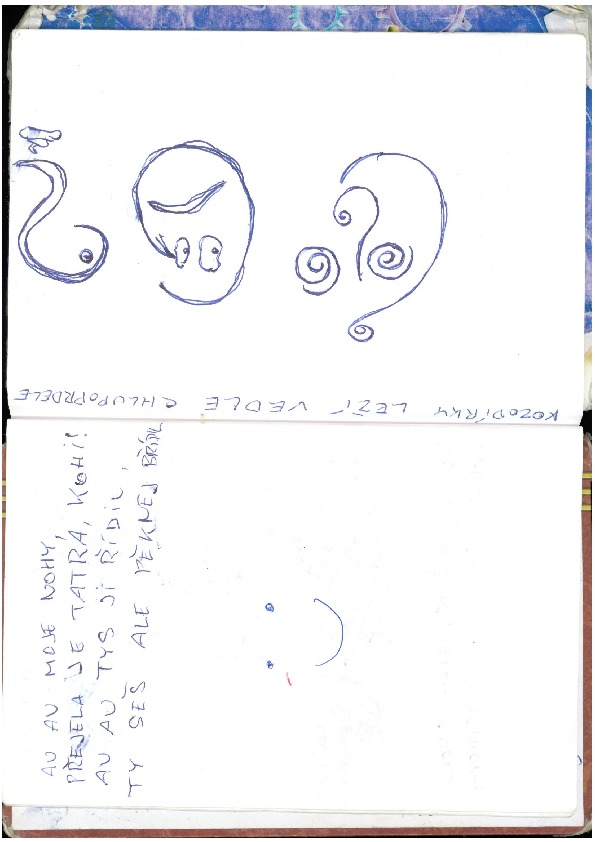 KOZODÍRKY LEŽÍ VEDLE CHLUPOPRDELE
AU AU MOJE NOHY,
PŘEJELA JE TATRA, KOHI!
AU AU TYS JÍ ŘÍDIL,
TY SEŠ ALE PĚKNEJ BŘÍDIL